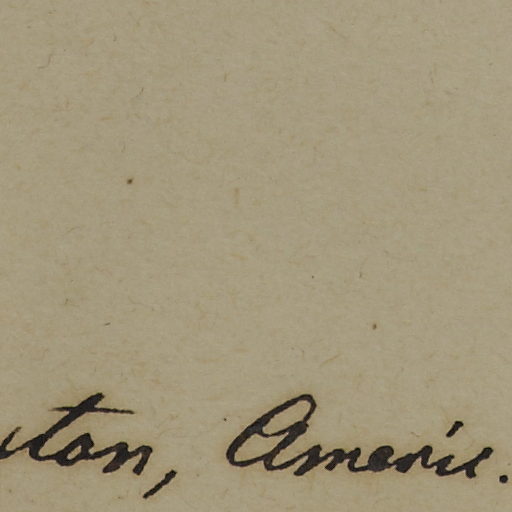 ton, Americ.